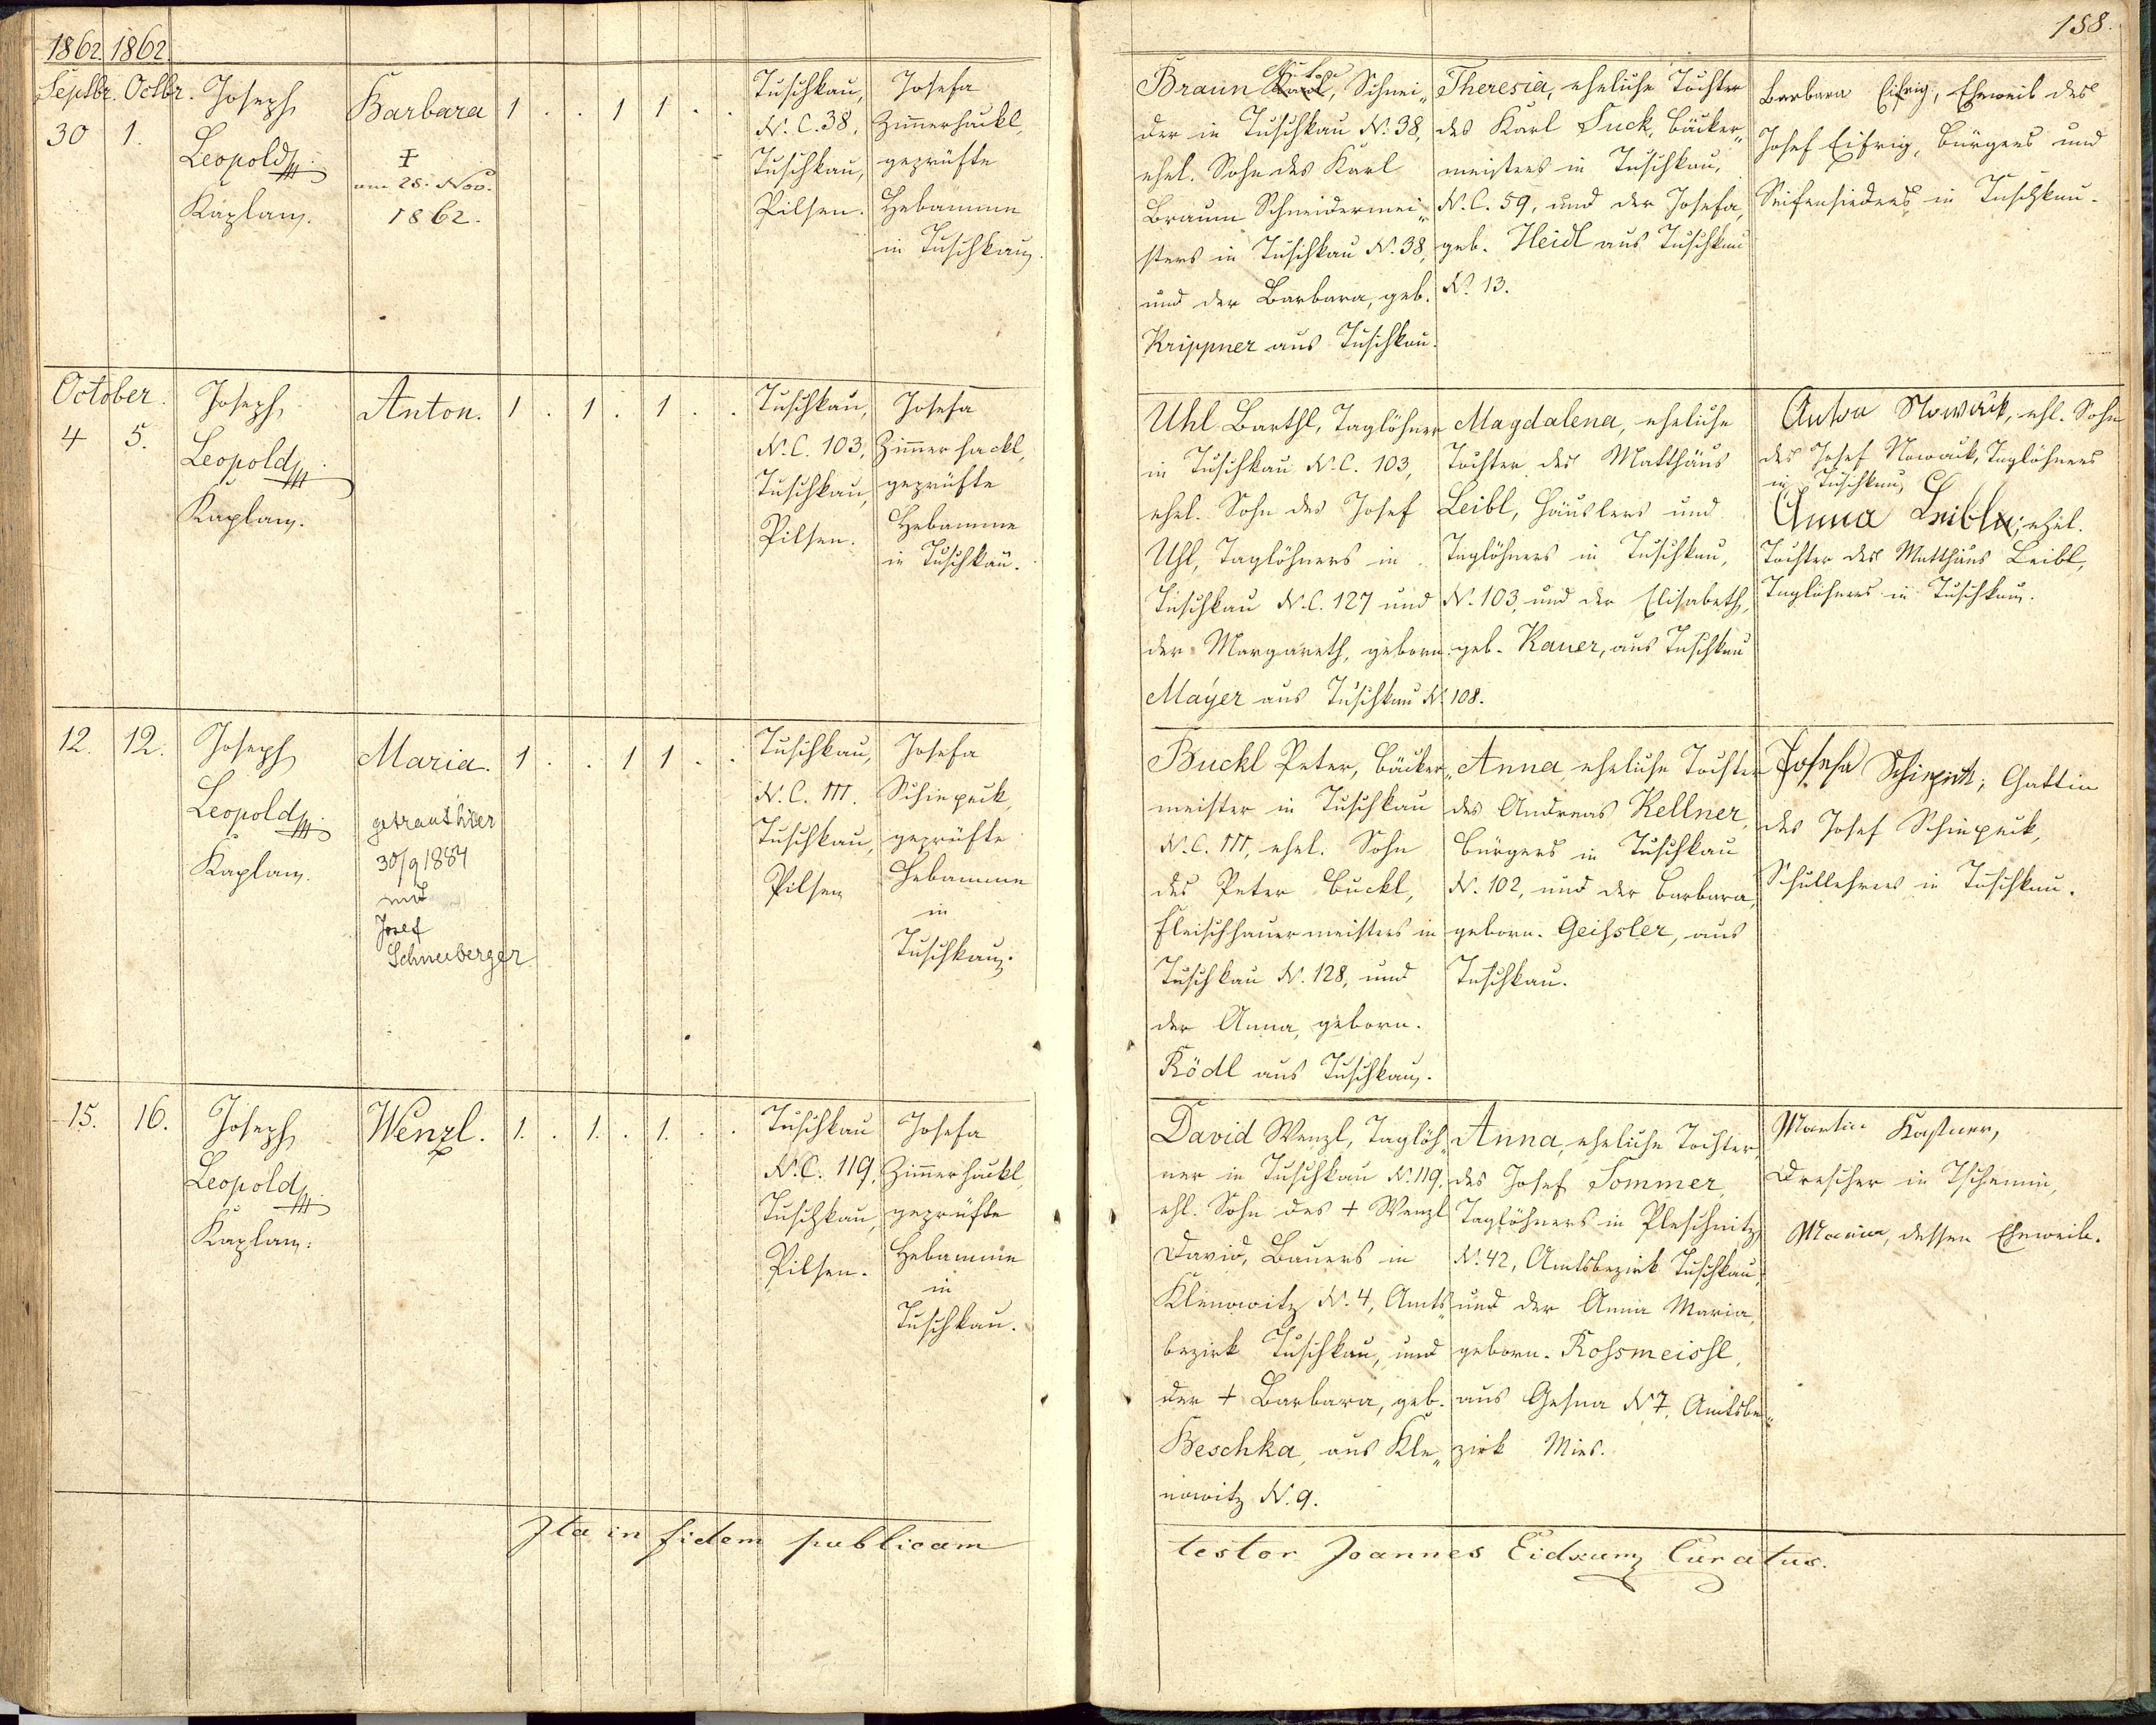 1862. 1862.
158.
Septbr. Octbr.
30 1.
Joseph
Leopold
Kaplan.
Barbara
†
am 28. Nov.
1862.
1 . . 1 1 . .
Tuschkau,
N.C. 38,
Tuschkau,
Pilsen.
Josefa
Zimmerhackl,
geprüfte
Hebamme
in Tuschkau.
Braun Karl, Schnei„
der in Tuschkau N. 38,
ehel. Sohn des Karl
Braun Schneidermei„
sters in Tuschkau N. 38,
und der Barbara, geb.
Krippner aus Tuschkau.
Theresia, eheliche Tochter
des Karl Suck, Bäcker„
meisters in Tuschkau,
N.C. 59, und der Josefa,
geb. Heidl aus Tuschkau
N. 13.
Barbara Eifrig, Eheweib des
Josef Eifrig, Bürgers und
Seifensieders in Tuschkau.
October.
4 5.
Joseph
Leopold
Kaplan.
Anton.
1 . 1 . 1 . .
Tuschkau,
N.C. 103,
Tuschkau,
Pilsen.
Josefa
Zimmerhackl,
geprüfte
Hebamme
in Tuschkau.
Uhl Barthl, Taglöhner
in Tuschkau N.C. 103,
ehel. Sohn des Josef
Uhl, Taglöhners in
Tuschkau N.C. 127 und
der Margareth, geborn.
Mayer aus Tuschkau N. 108.
Magdalena, eheliche
Tochter des Matthäus
Leibl, Häuslers und
Taglöhners in Tuschkau,
N. 103, und der Elisabeth,
geb. Kauer, aus Tuschkau
Anton Nowack, ehl. Sohn
des Josef Nowack, Taglöhners
in Tuschkau,
Anna Leibl, ehel.
Tochter des Matthäus Leibl,
Taglöhners in Tuschkau.
12. 12.
Joseph
Leopold
Kaplan.
Maria.
getraut hier
30/9 1884
mit
Josef
Schneeberger
1 . . 1 1 . .
Tuschkau,
N.C. 111.
Tuschkau,
Pilsen
Josefa
Schiepeck,
geprüfte
Hebamme
in
Tuschkau.
Buckl Peter, Bäcker„
meister in Tuschkau
N.C. 111, ehel. Sohn
des Peter Buckl,
Fleischhauermeisters in
Tuschkau N. 128, und
der Anna, geborn.
Ködl aus Tuschkau.
Anna, eheliche Tochter
des Andreas Kellner,
Bürgers in Tuschkau
N. 102, und der Barbara,
geborn. Geißler, aus
Tuschkau.
Josefa Schiepek, Gattin
des Josef Schiepeck,
Schullehrers in Tuschkau.
15. 16.
Joseph
Leopold
Kaplan.
Wenzl.
1. . 1. . 1. . .
Tuschkau
N.C. 119,
Tuschkau,
Pilsen.
Josefa
Zimmerhackl
geprüfte
Hebamme
in
Tuschkau.
David Wenzl, Taglöh„
ner in Tuschkau N. 119,
ehl. Sohn des † Wenzl
David, Bauers in
Klenowitz N. 4, Amts„
bezirk Tuschkau, und
der † Barbara, geb.
Beschka, aus Kle„
nowitz N. 9.
Anna, eheliche Tochter,
des Josef Sommer,
Taglöhners in Pleschnitz,
N. 42, Amtsbezirk Tuschkau,
und der Anna Maria,
geborn. Roßmeisl,
aus Gesna N 7, Amtsbe„
zirk Mies.
Martin Kastner,
Drescher in Tschemin,
Maria, dessen Eheweib.
Ita in fidem publicam
testor Joannes Curatus.